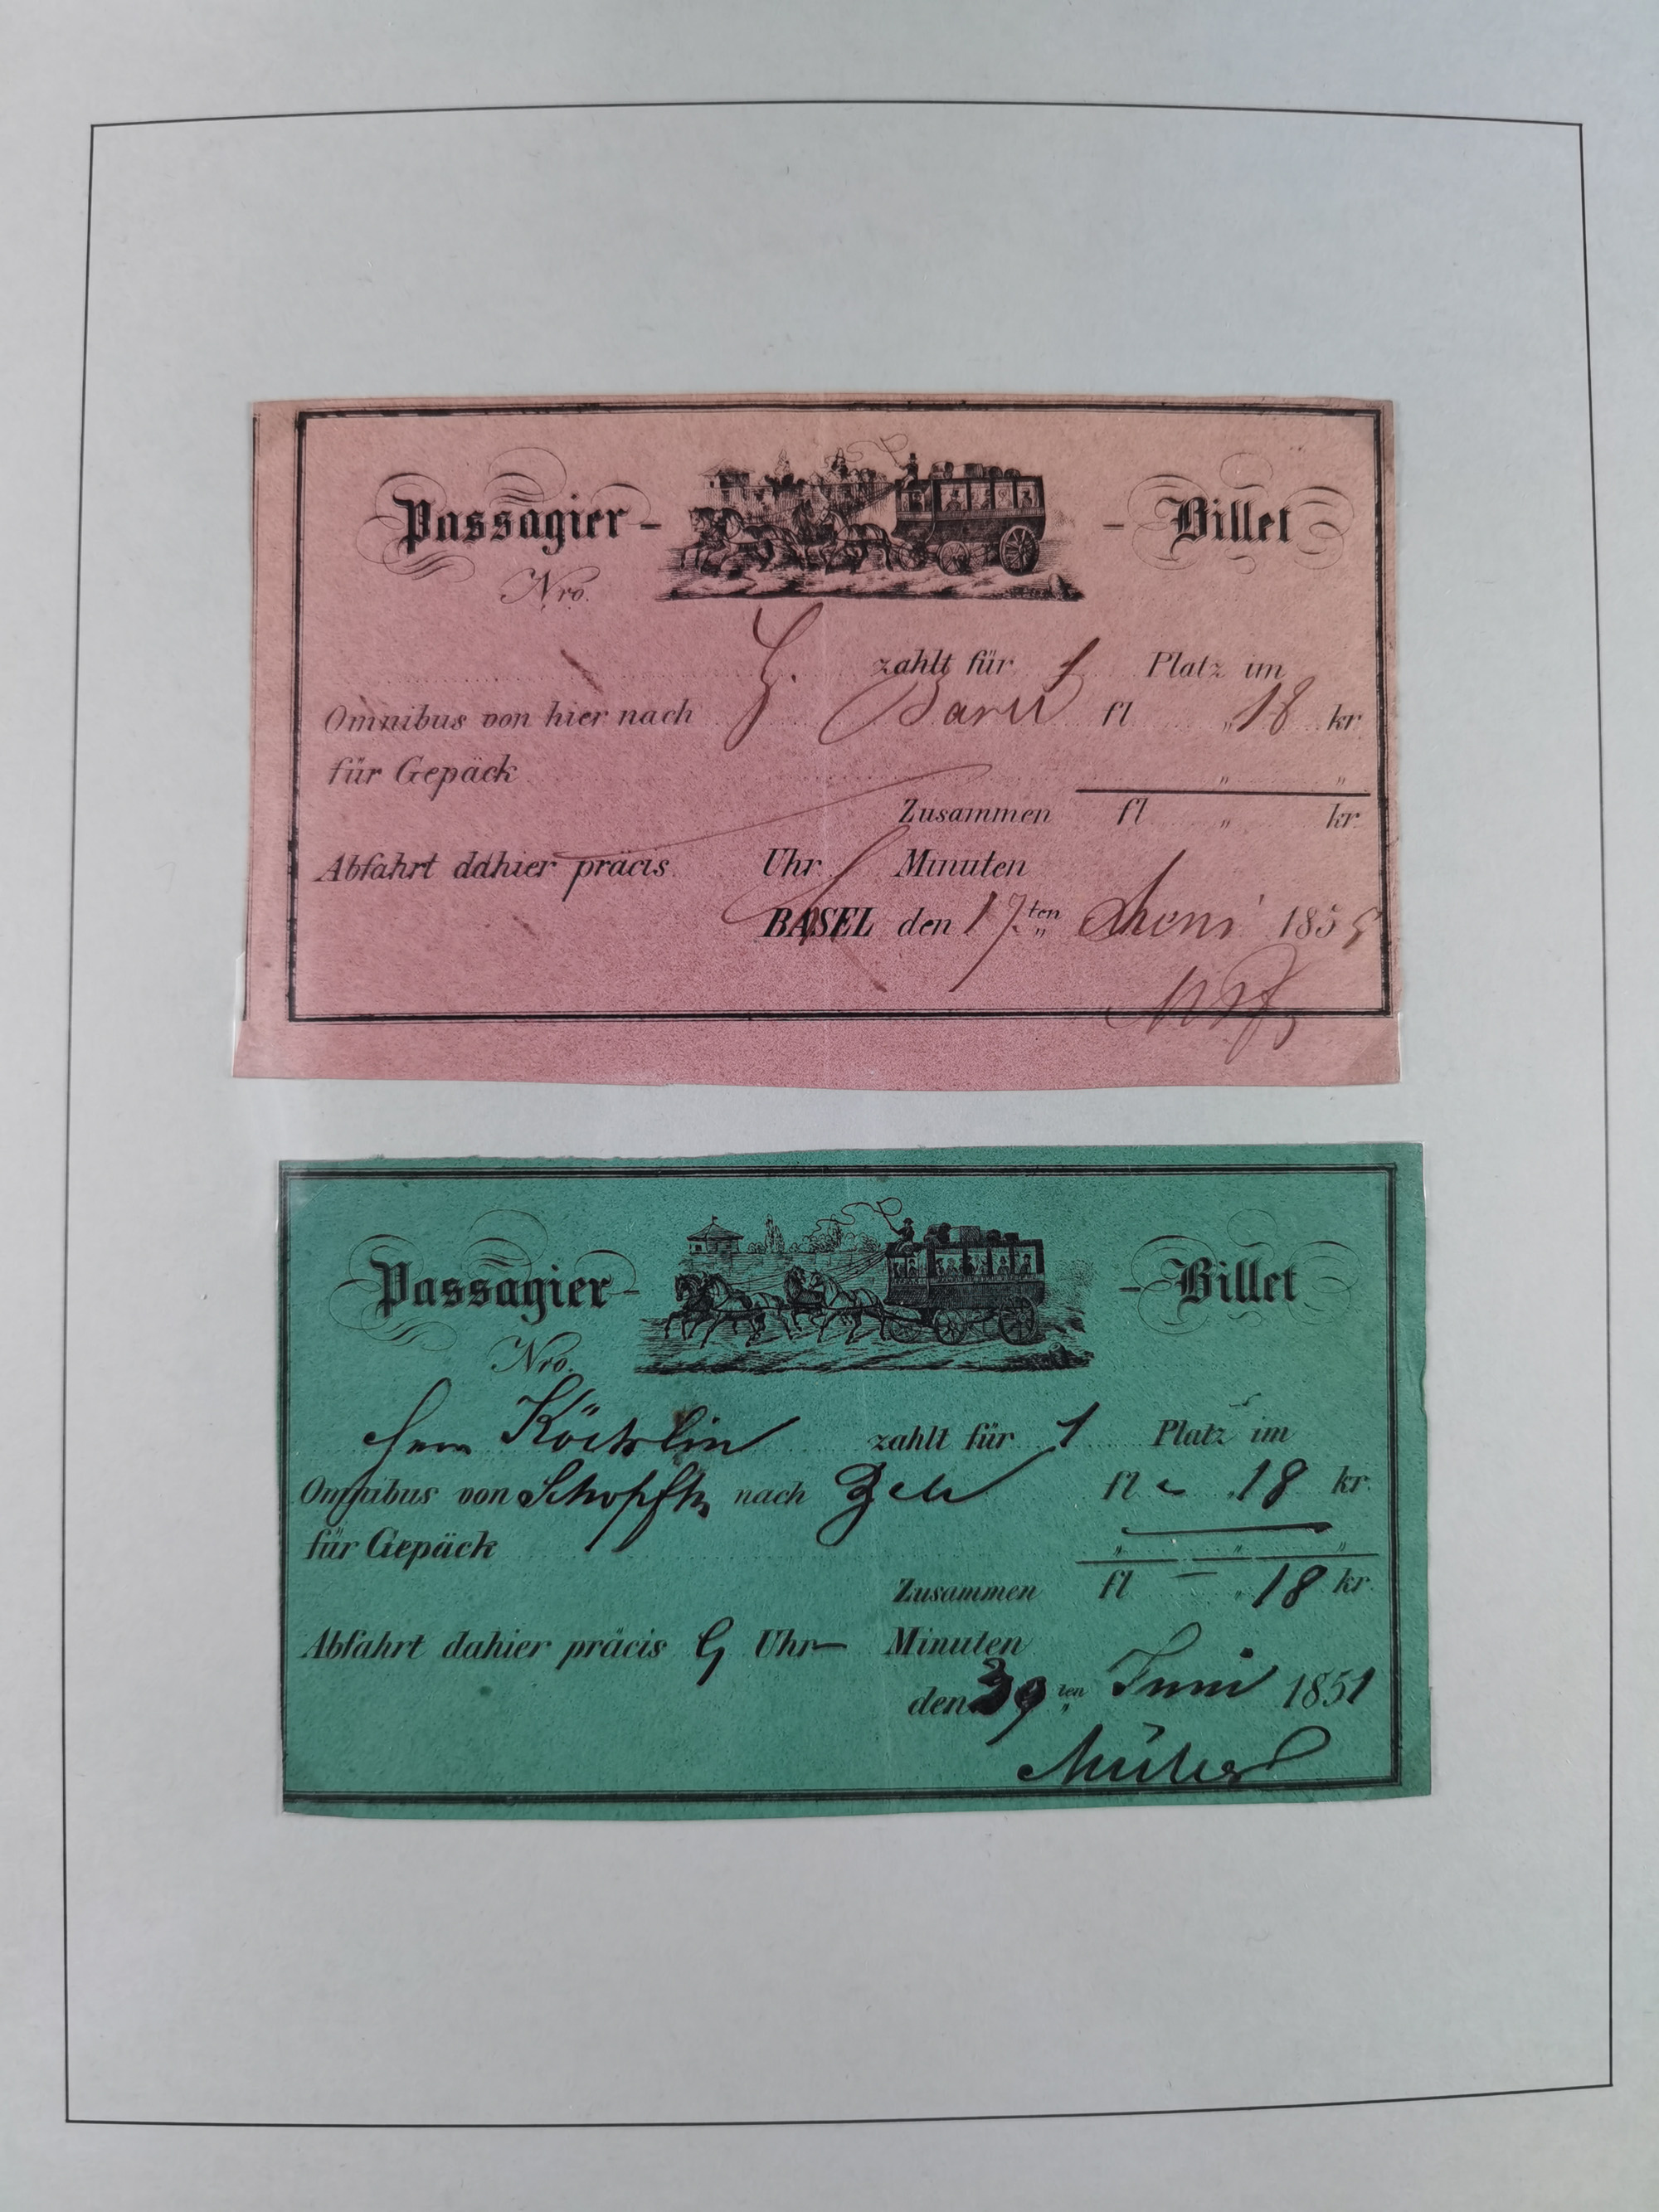 Passagier- - Billet
Nro.
zahlt für 1 Platz im
Omnibus von hier nach fl „ 18 kr.
für Gepäck „ „
Zusammen fl „ kr.
Abfahrt dahier präcis Uhr Minuten
BASEL den 17ten 185
Passagier- - Billet
Nro.
Herr Köchlin zahlt für 1 Platz im
Omnibus von Schopfh nach Zell fl „ 18 kr.
für Gepäck „ „ „
Zusammen fl — „ 18 kr.
Abfahrt dahier präcis 9 Uhr — Minuten
den ten Juni 1851
Müller